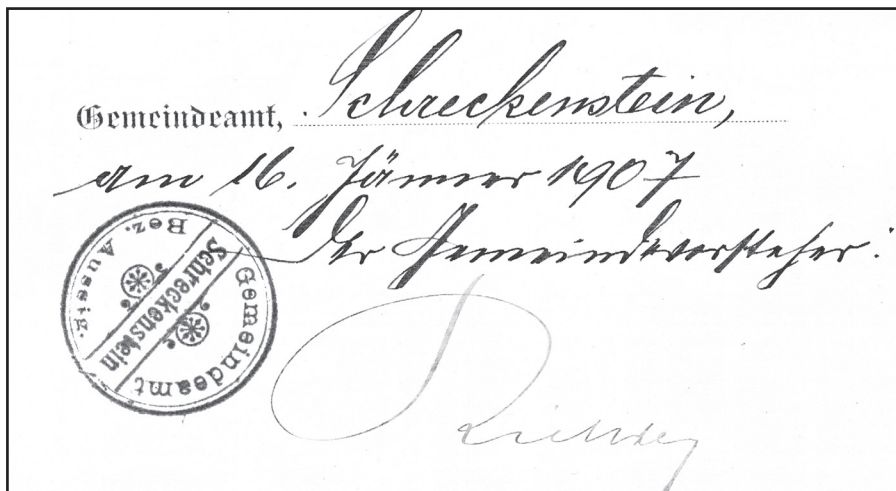 Gemeindeamt, Schreckenstein,
am 16. Jänner 1907
Der Gemeindevorsteher:
Gemeindeamt
Schreckenstein
Bez. Aussig.